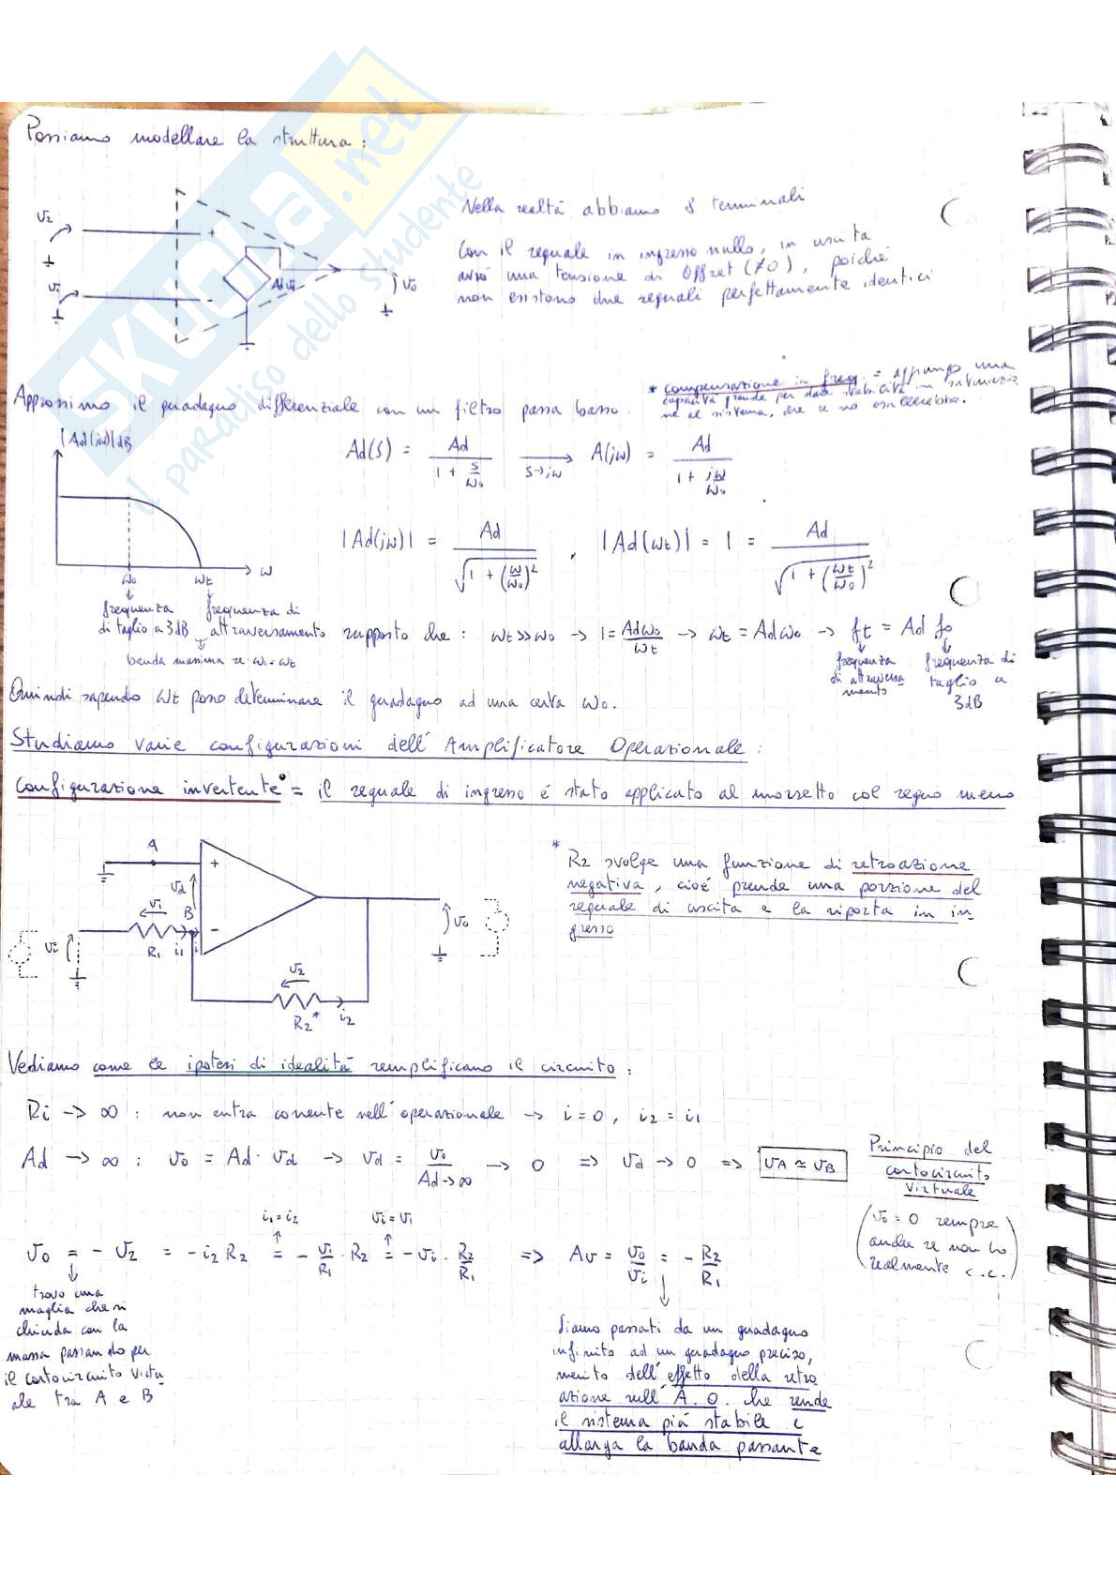 Possiamo modellare la struttura:
SKUOLA.net
il paradiso dello studente
Nella realtà abbiamo 8 terminali
Con il segnale in ingresso nullo, in uscita
avrò una tensione di Offset (≠0), poiché
non esistono due segnali perfettamente identici
v2
+
vi
-
Ad vd
v0
* compensazione in freq. = aggiungo una
capacità grande per dare stabilità in
al sistema, che se no oscillerebbe.
Approssimo il guadagno differenziale con un filtro passa basso.
|Ad(jω)|dB
Ad(s) = Ad / (1 + s/ω0) → s→jω A(jω) = Ad / (1 + jω/ω0)
|Ad(jω)| = Ad / √(1 + (ω/ω0)²) , |Ad(ωt)| = 1 = Ad / √(1 + (ωt/ω0)²)
ω0 ωt ω
frequenza di taglio a 3dB
frequenza di attraversamento
banda massima se ω0=ωt
supposto che: ωt>>ω0 → 1 = Adω0/ωt → ωt = Adω0 → ft = Ad f0
frequenza di attraversamento
frequenza di taglio a 3dB
Quindi sapendo ωt posso determinare il guadagno ad una certa ω0.
Studiamo varie configurazioni dell'Amplificatore Operazionale:
Configurazione invertente = il segnale di ingresso é stato applicato al morsetto col segno meno
A
+
vd
v1
B
-
vi
R1
i1
i
v0
v2
R2*
i2
* R2 svolge una funzione di retroazione
negativa, cioé prende una porzione del
segnale di uscita e la riporta in in-
gresso
Vediamo come le ipotesi di idealità semplificano il circuito:
Ri → ∞ : non entra corrente nell'operazionale → i=0, i2 = i1
Ad → ∞ : v0 = Ad · vd → vd = v0 / Ad→∞ → 0 ⇒ vd → 0 ⇒ vA ≃ vB
Principio del
cortocircuito
virtuale
(v0 = 0 sempre
anche se non ho
realmente c.c.)
i1=i2
vi=v1
v0 = - v2 = - i2 R2 = - vi/R1 · R2 = - vi · R2/R1 ⇒ Av = v0/vi = - R2/R1
trovo una
maglia che si
chiuda con la
massa passando per
il cortocircuito virtu
ale tra A e B
Siamo passati da un guadagno
infinito ad un guadagno preciso,
merito dell'effetto della retro
azione sull'A.O. che rende
il sistema più stabile e
allarga la banda passante